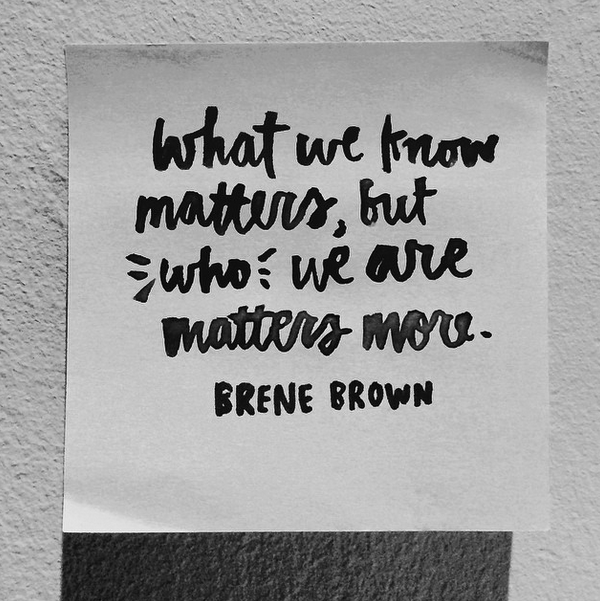 What we know
matters, but
who we are
matters more.
BRENE BROWN